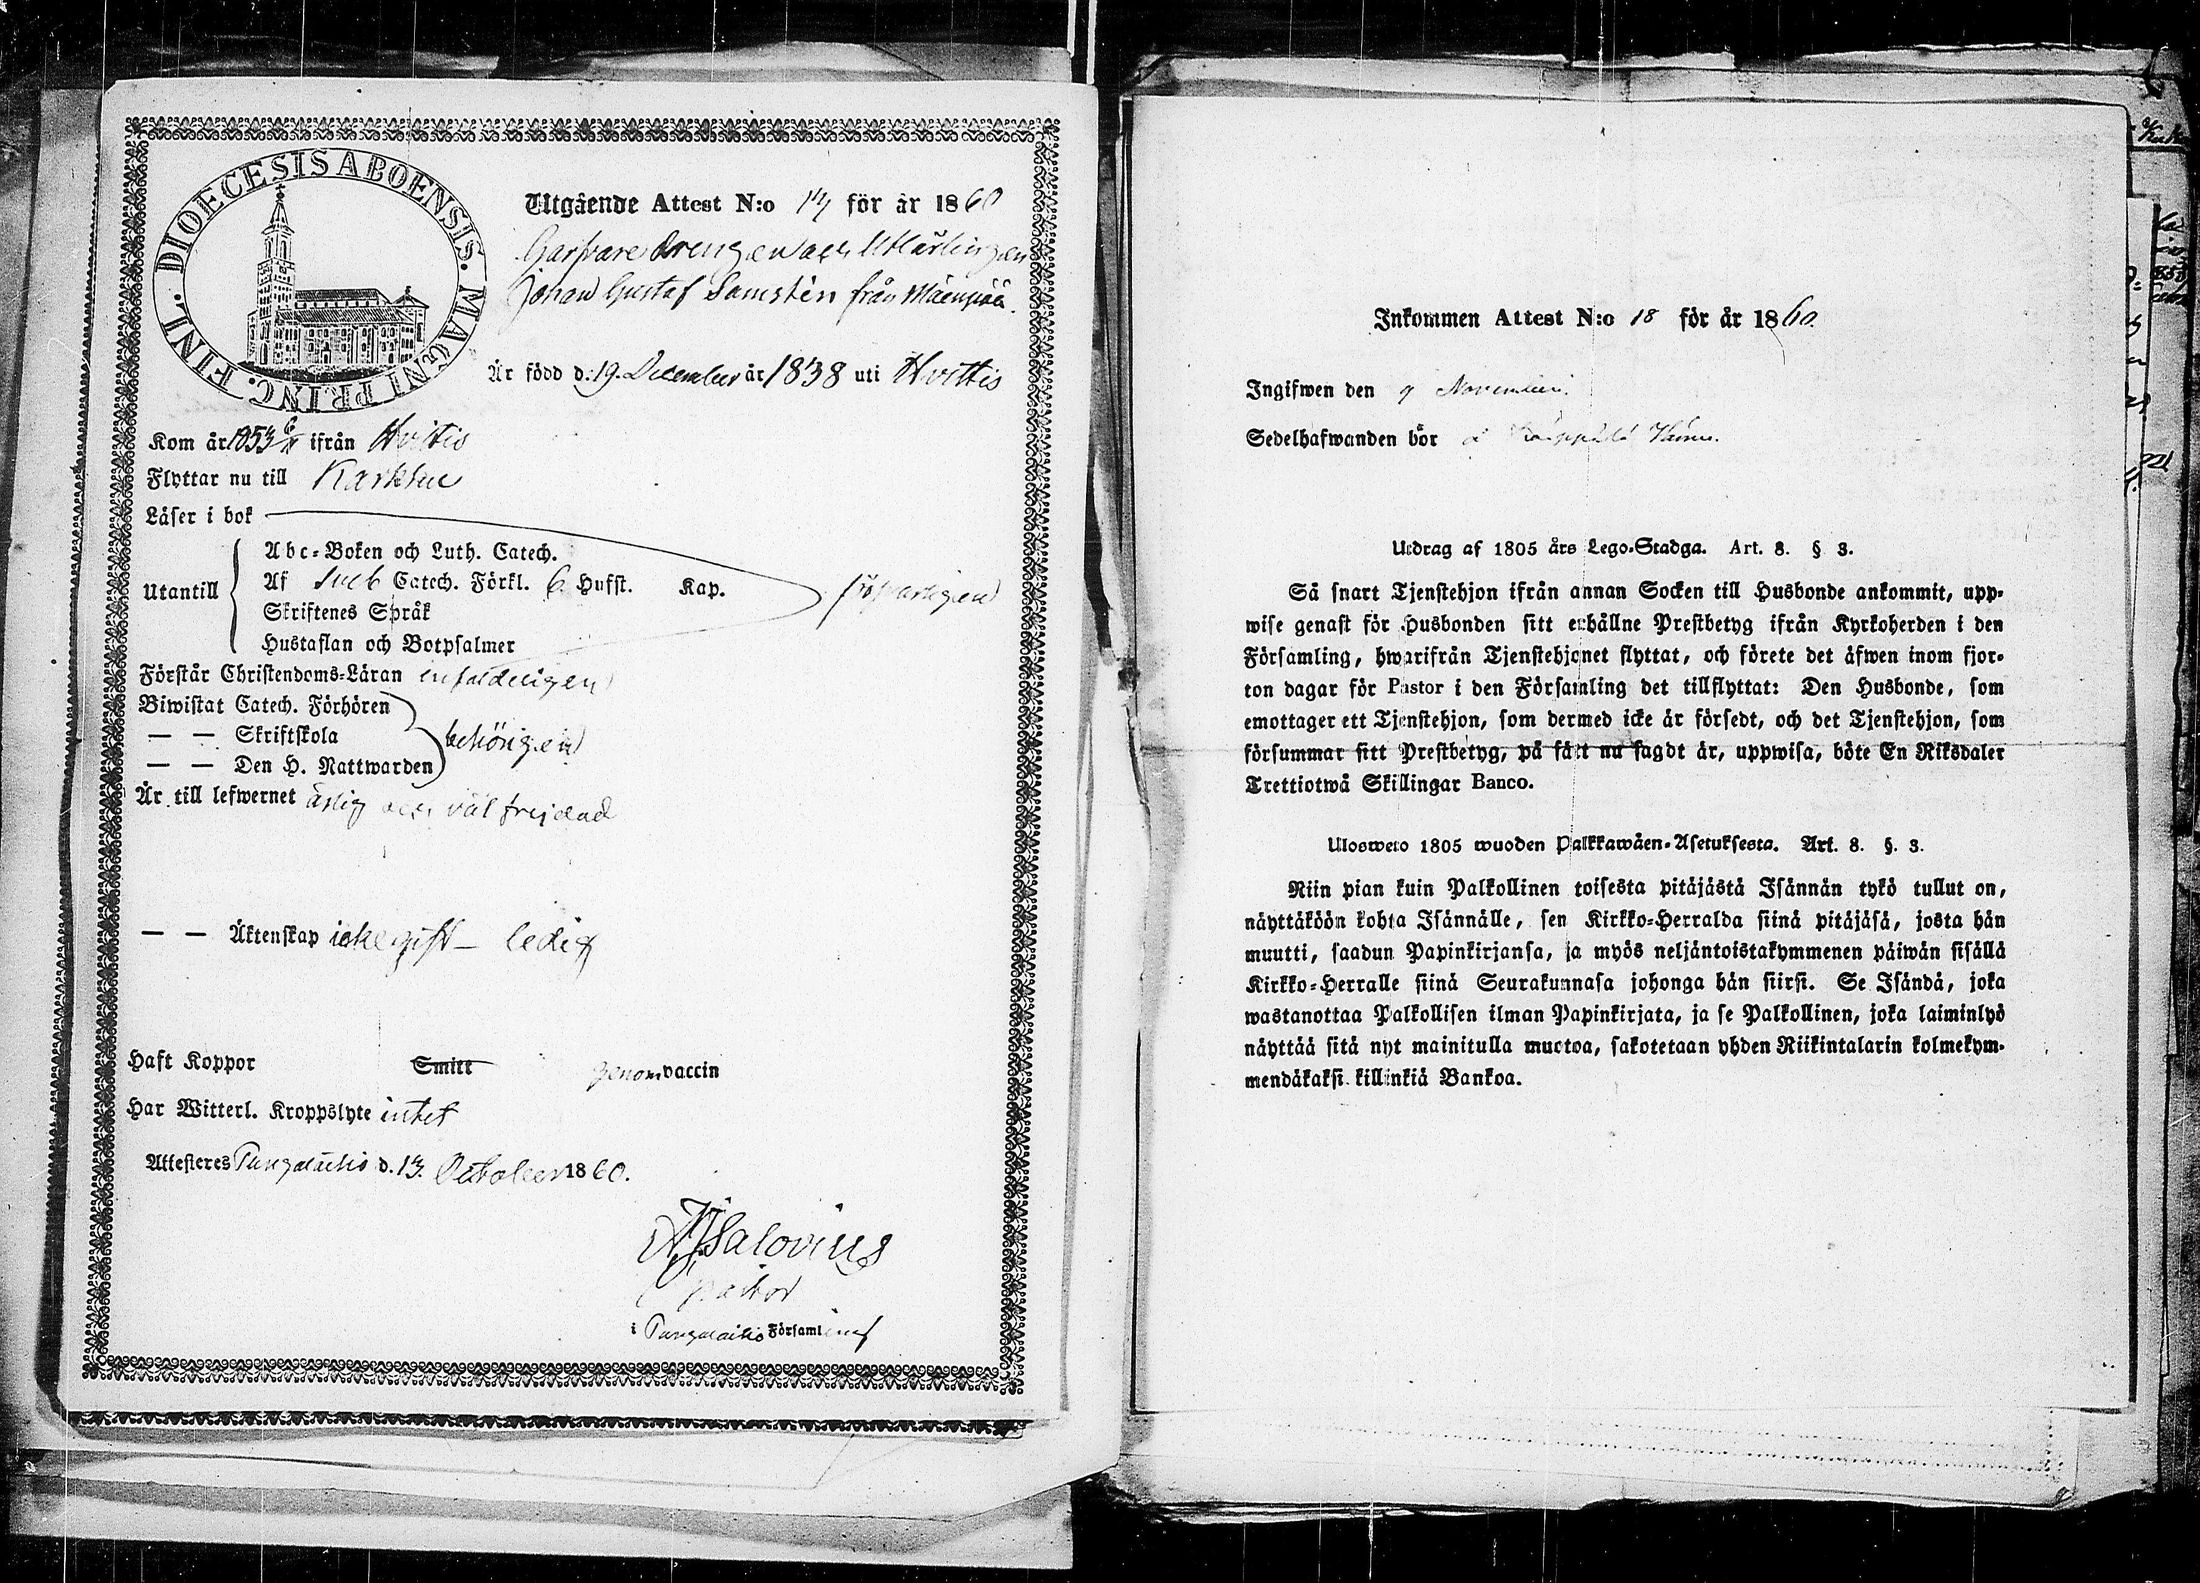 DIOECESIS ABOENSIS. MAGNI PRINC. FINL.
Utgående Attest N:o 13 för år 1860
Garfvare Drengen och Lärlingen
Johan Gustaf Samstén från Mäenpää.
Är född d: 19 December år 1838 uti Hvittis
Kom år 1853 ifrån Hvittis
Flyttar nu till Karkku
Läser i bok
Utantill
Abc-Boken och Luth. Catech.
Af Sveb Catech. Förkl. 6 Hufst. Kap.
försvarligen
Skriftenes Språk
Hustaflan och Botpsalmer
Förstår Christendoms-Läran enfaldeligen
Biwistat Catech. Förhören
— — Skriftskola
behörigen
— — Den H. Nattwarden
Är till lefwernet ärlig och välfrejdad
— — Äktenskap icke gift – ledig
Haft Koppor Smitt genom vaccin
Har Witterl. Kroppslyte intet
Attesteres Pungalaitio d. 13 October 1860.
AJSalovius
Pastor
i Pungalaitio Församling
Inkommen Attest N:o 18 för år 1860.
Ingifwen den 9 November.
Sedelhafwanden bör
Utdrag af 1805 års Lego-Stadga. Art. 8. § 3.
Så snart Tjenstehjon ifrån annan Socken till Husbonde ankommit, upp-
wise genast för Husbonden sitt erhållne Prestbetyg ifrån Kyrkoherden i den
Församling, hwarifrån Tjenstehjonet flyttat, och förete det äfwen inom fjor-
ton dagar för Pastor i den Församling det tillflyttat: Den Husbonde, som
emottager ett Tjenstehjon, som dermed icke är försedt, och det Tjenstehjon, som
försummar sitt Prestbetyg, på sätt nu sagdt är, uppwisa, böte En Riksdaler
Trettiotwå Skillingar Banco.
Uloswero 1805 wuoden Palkkawäen-Asetuksesta. Art. 8. §. 3.
Niin pian kuin Palkollinen toisesta pitäjästä Isännän tykö tullut on,
näyttäköön kohta Isännälle, sen Kirkko-Herralda siinä pitäjäsä, josta hän
muutti, saadun Papinkirjansa, ja myös neljäntoistakymmenen päiwän sisällä
Kirkko-Herralle siinä Seurakunnasa johonga hän siirsi. Se Isändä, joka
wastanottaa Palkollisen ilman Papinkirjata, ja se Palkollinen, joka laiminlyö
näyttää sitä nyt mainitulla muotoa, sakotetaan yhden Riikintalarin kolmekym-
mendäkaksi killinkiä Bankoa.